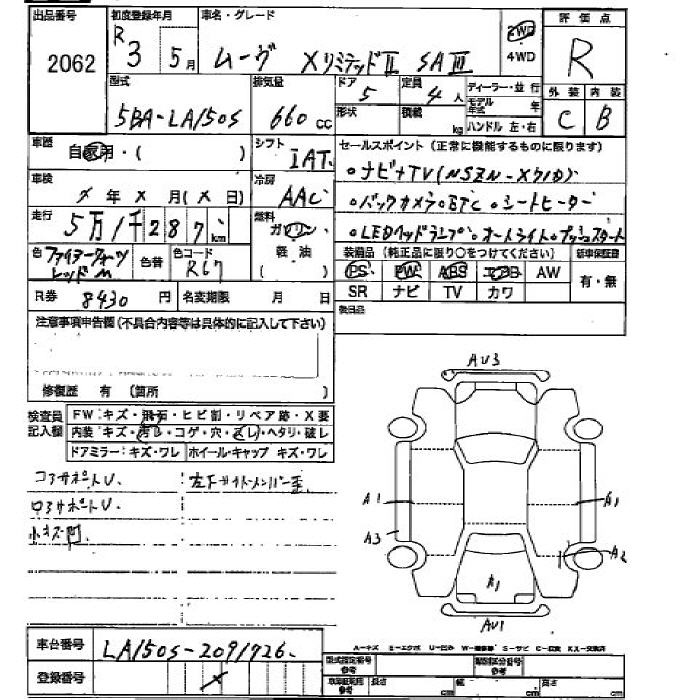 出品番号 2062
初度登録年月 R3 5月
車名・グレード ムーヴ XリミテッドⅡ SAⅢ
2WD
4WD
評価点 R
型式 5BA-LA150S
排気量 660 cc
ドア 5
定員 4人
形状
積載 kg
ディーラー・並行
モデル年式 年
ハンドル 左・右
外装 C
内装 B
車歴 自家用・( )
シフト IAT
セールスポイント (正常に機能するものに限ります)
。ナビ+TV(NSZN-X71D)
。バックカメラ。ETC。シートヒーター
。LEDヘッドランプ。オートライト。プッシュスタート
車検 年 X 月 (X 日)
冷房 AAC
走行 5万1千287km
燃料 ガソリン
軽油
( )
装備品 (純正品に限り○をつけてください)
新車保証書
有・無
PS PW ABS エアB AW
SR ナビ TV カワ
色 ファイヤークォーツレッドM
色替
色コード R67
R券 8430円
名変期限 月 日
後日品
注意事項申告欄 (不具合内容等は具体的に記入して下さい)
修復歴 有 (箇所 )
検査員記入欄
FW:キズ・飛石・ヒビ割・リペア跡・X要
内装:キズ・汚レ・コゲ・穴・スレ・ヘタリ・破レ
ドアミラー:キズ・ワレ ホイール・キャップ キズ・ワレ
コアサポートU.
ロアサポートU
小キズ
左Fサイドメンバー歪
AU3
A1
A3
A1
A2
A1
AU1
A-キズ E-エクボ U-凹ミ W-補修跡 S-サビ C-腐食 XX-交換済
車台番号 LA150S-2091726.
登録番号 X
型式指定番号 参考
類別区分番号 参考
車両寸法 参考 長さ cm 幅 cm 高さ cm